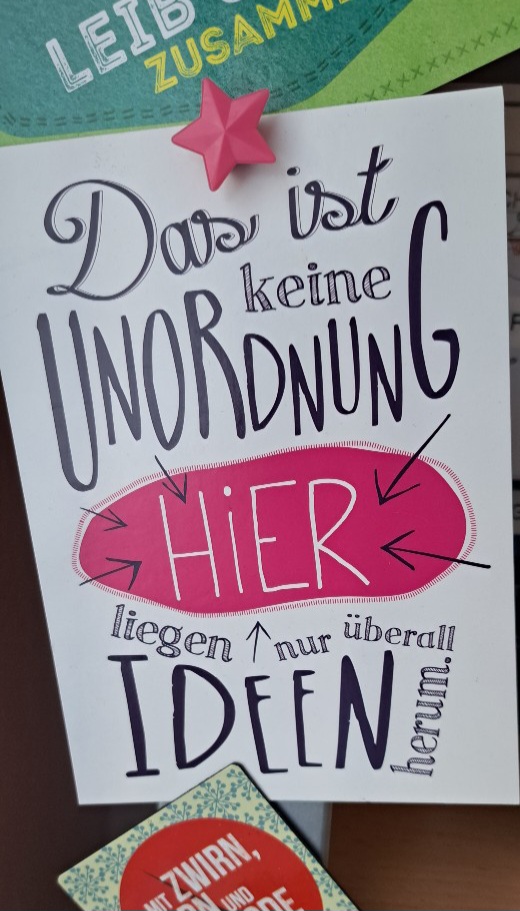 LEIB
ZUSAMM
Das ist
keine
UNORDNUNG
HiER
liegen nur überall
IDEEN herum.
MIT ZWIRN,
UND